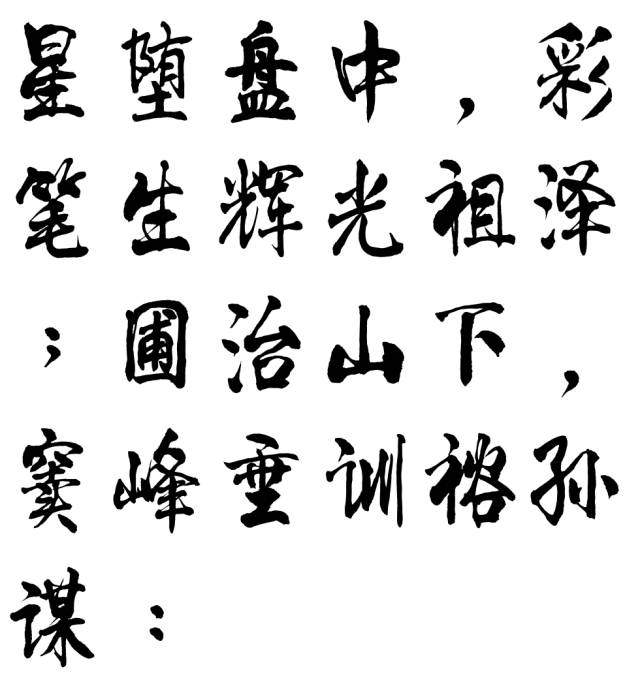 星堕盘中，彩
笔生辉光祖泽
；圃治山下，
窦峰垂训裕孙
谋：